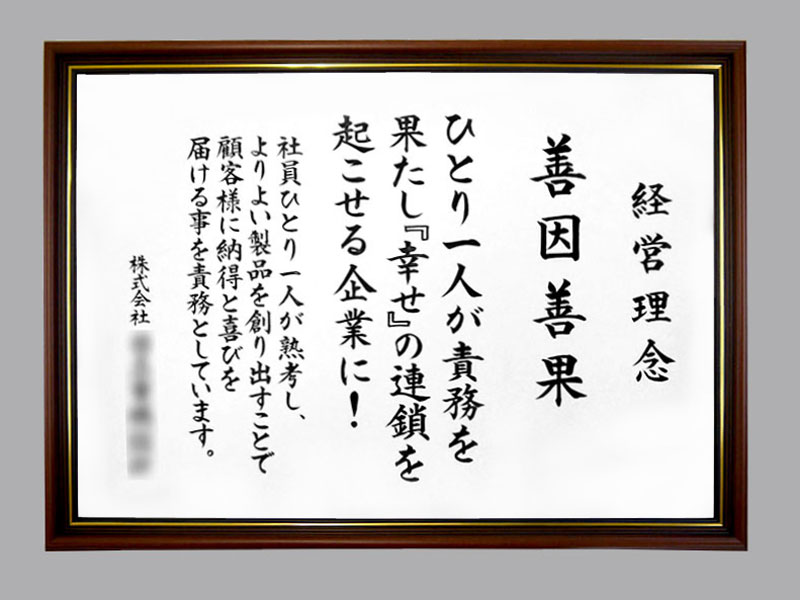 経営理念
善因善果
ひとり一人が責務を
果たし『幸せ』の連鎖を
起こせる企業に！
社員ひとり一人が熟考し、
よりよい製品を創り出すことで
顧客様に納得と喜びを
届ける事を責務としています。
株式会社